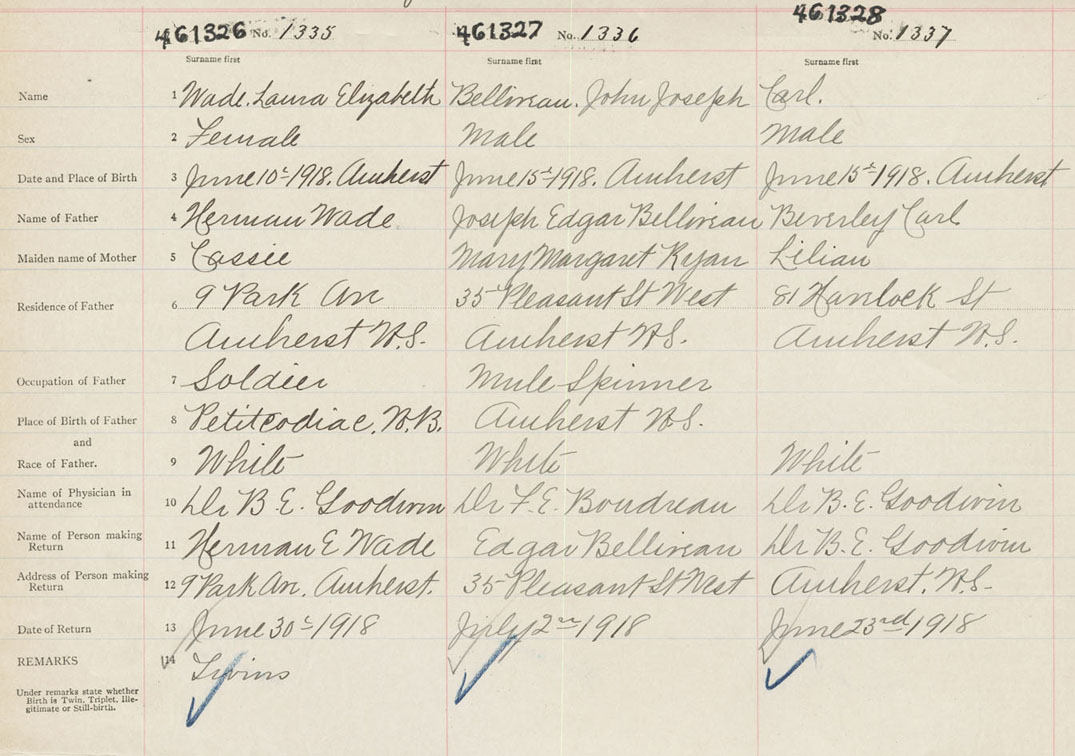 461326 No. 1335 461327 No. 1336 461328 No. 1337
Surname first Surname first Surname first
Name 1 Wade. Laura Elizabeth Belliveau. John Joseph Carl.
Sex 2 Female Male Male
Date and Place of Birth 3 June 10th 1918. Amherst June 15th 1918. Amherst June 15th 1918. Amherst
Name of Father 4 Herman Wade. Joseph Edgar Belliveau Beverley Carl
Maiden name of Mother 5 Cassie Mary Margaret Ryan Lilian
Residence of Father 6 9 Park Av 35 Pleasant St West 81 Havelock St
Amherst N.S. Amherst N.S. Amherst N.S.
Occupation of Father 7 Soldier Mule Spinner
Place of Birth of Father 8 Petitcodiac. N.B. Amherst N.S.
and
Race of Father. 9 White White White
Name of Physician in attendance 10 Dr B. E. Goodwin Dr F. E. Boudreau Dr B. E. Goodwin
Name of Person making Return 11 Herman E Wade Edgar Belliveau Dr B. E. Goodwin
Address of Person making Return 12 9 Park Av. Amherst. 35 Pleasant St West Amherst. N.S.
Date of Return 13 June 30th 1918 July 2nd 1918 June 23rd 1918
REMARKS 14 Twins
Under remarks state whether
Birth is Twin, Triplet, Ille-
gitimate or Still-birth.